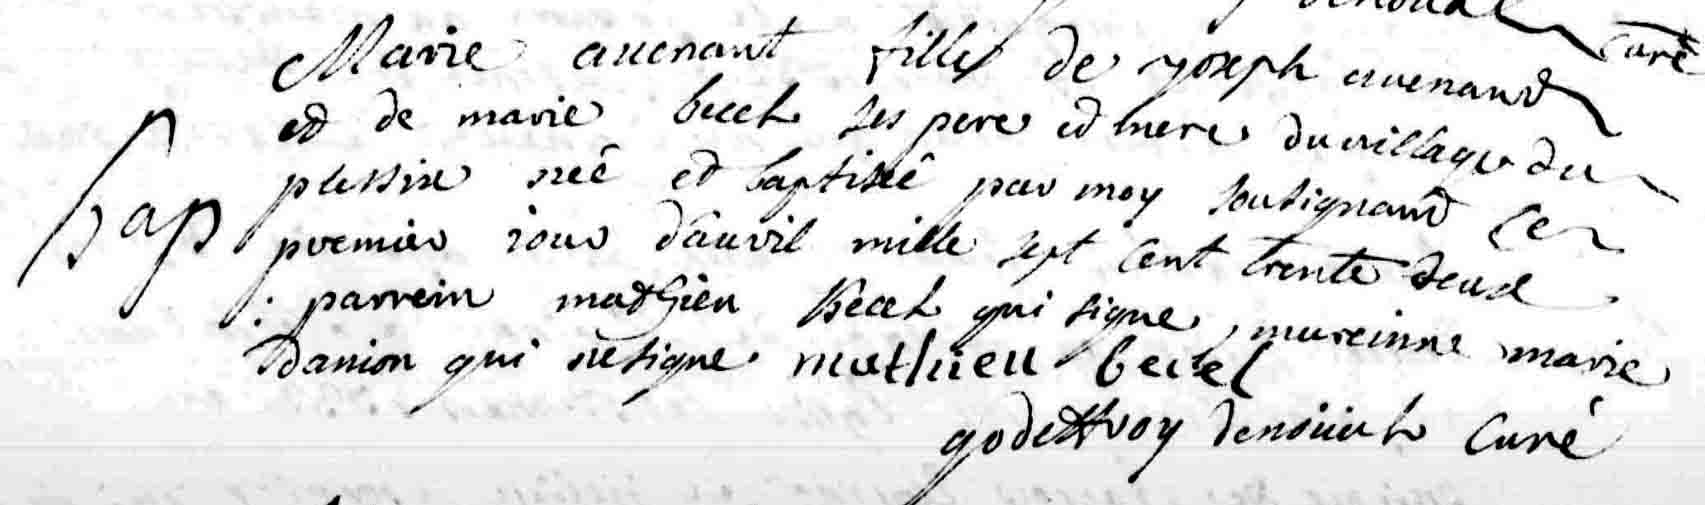 curé
Marie avenant fille de joseph avenand
et de marie becel ses pere et mere du village du
plessix neê et baptiseê par moy sousignand ce
bap
premier jour d'auvil mille sept cent trente deux
: parrein mathieu Becel qui signe, mareinne marie
danion qui ne signe mathieu becel
godeffroy denoüal curé